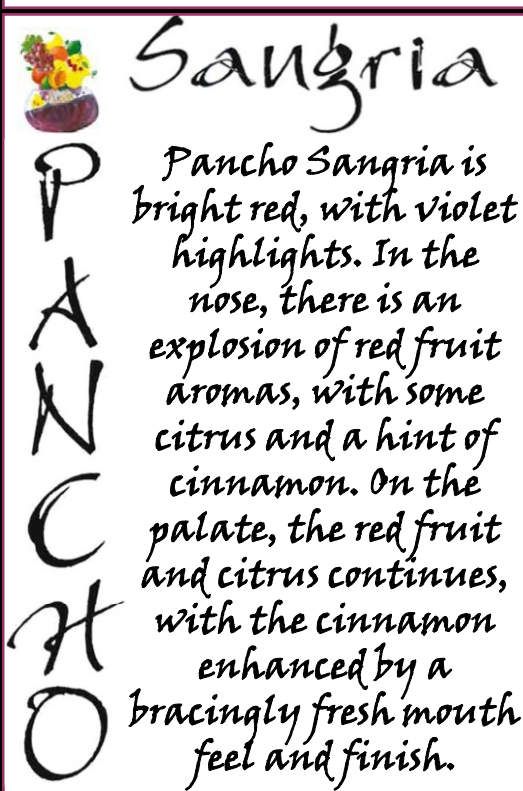 Sangria
PANCHO
Pancho Sangria is
bright red, with violet
highlights. In the
nose, there is an
explosion of red fruit
aromas, with some
citrus and a hint of
cinnamon. On the
palate, the red fruit
and citrus continues,
with the cinnamon
enhanced by a
bracingly fresh mouth
feel and finish.